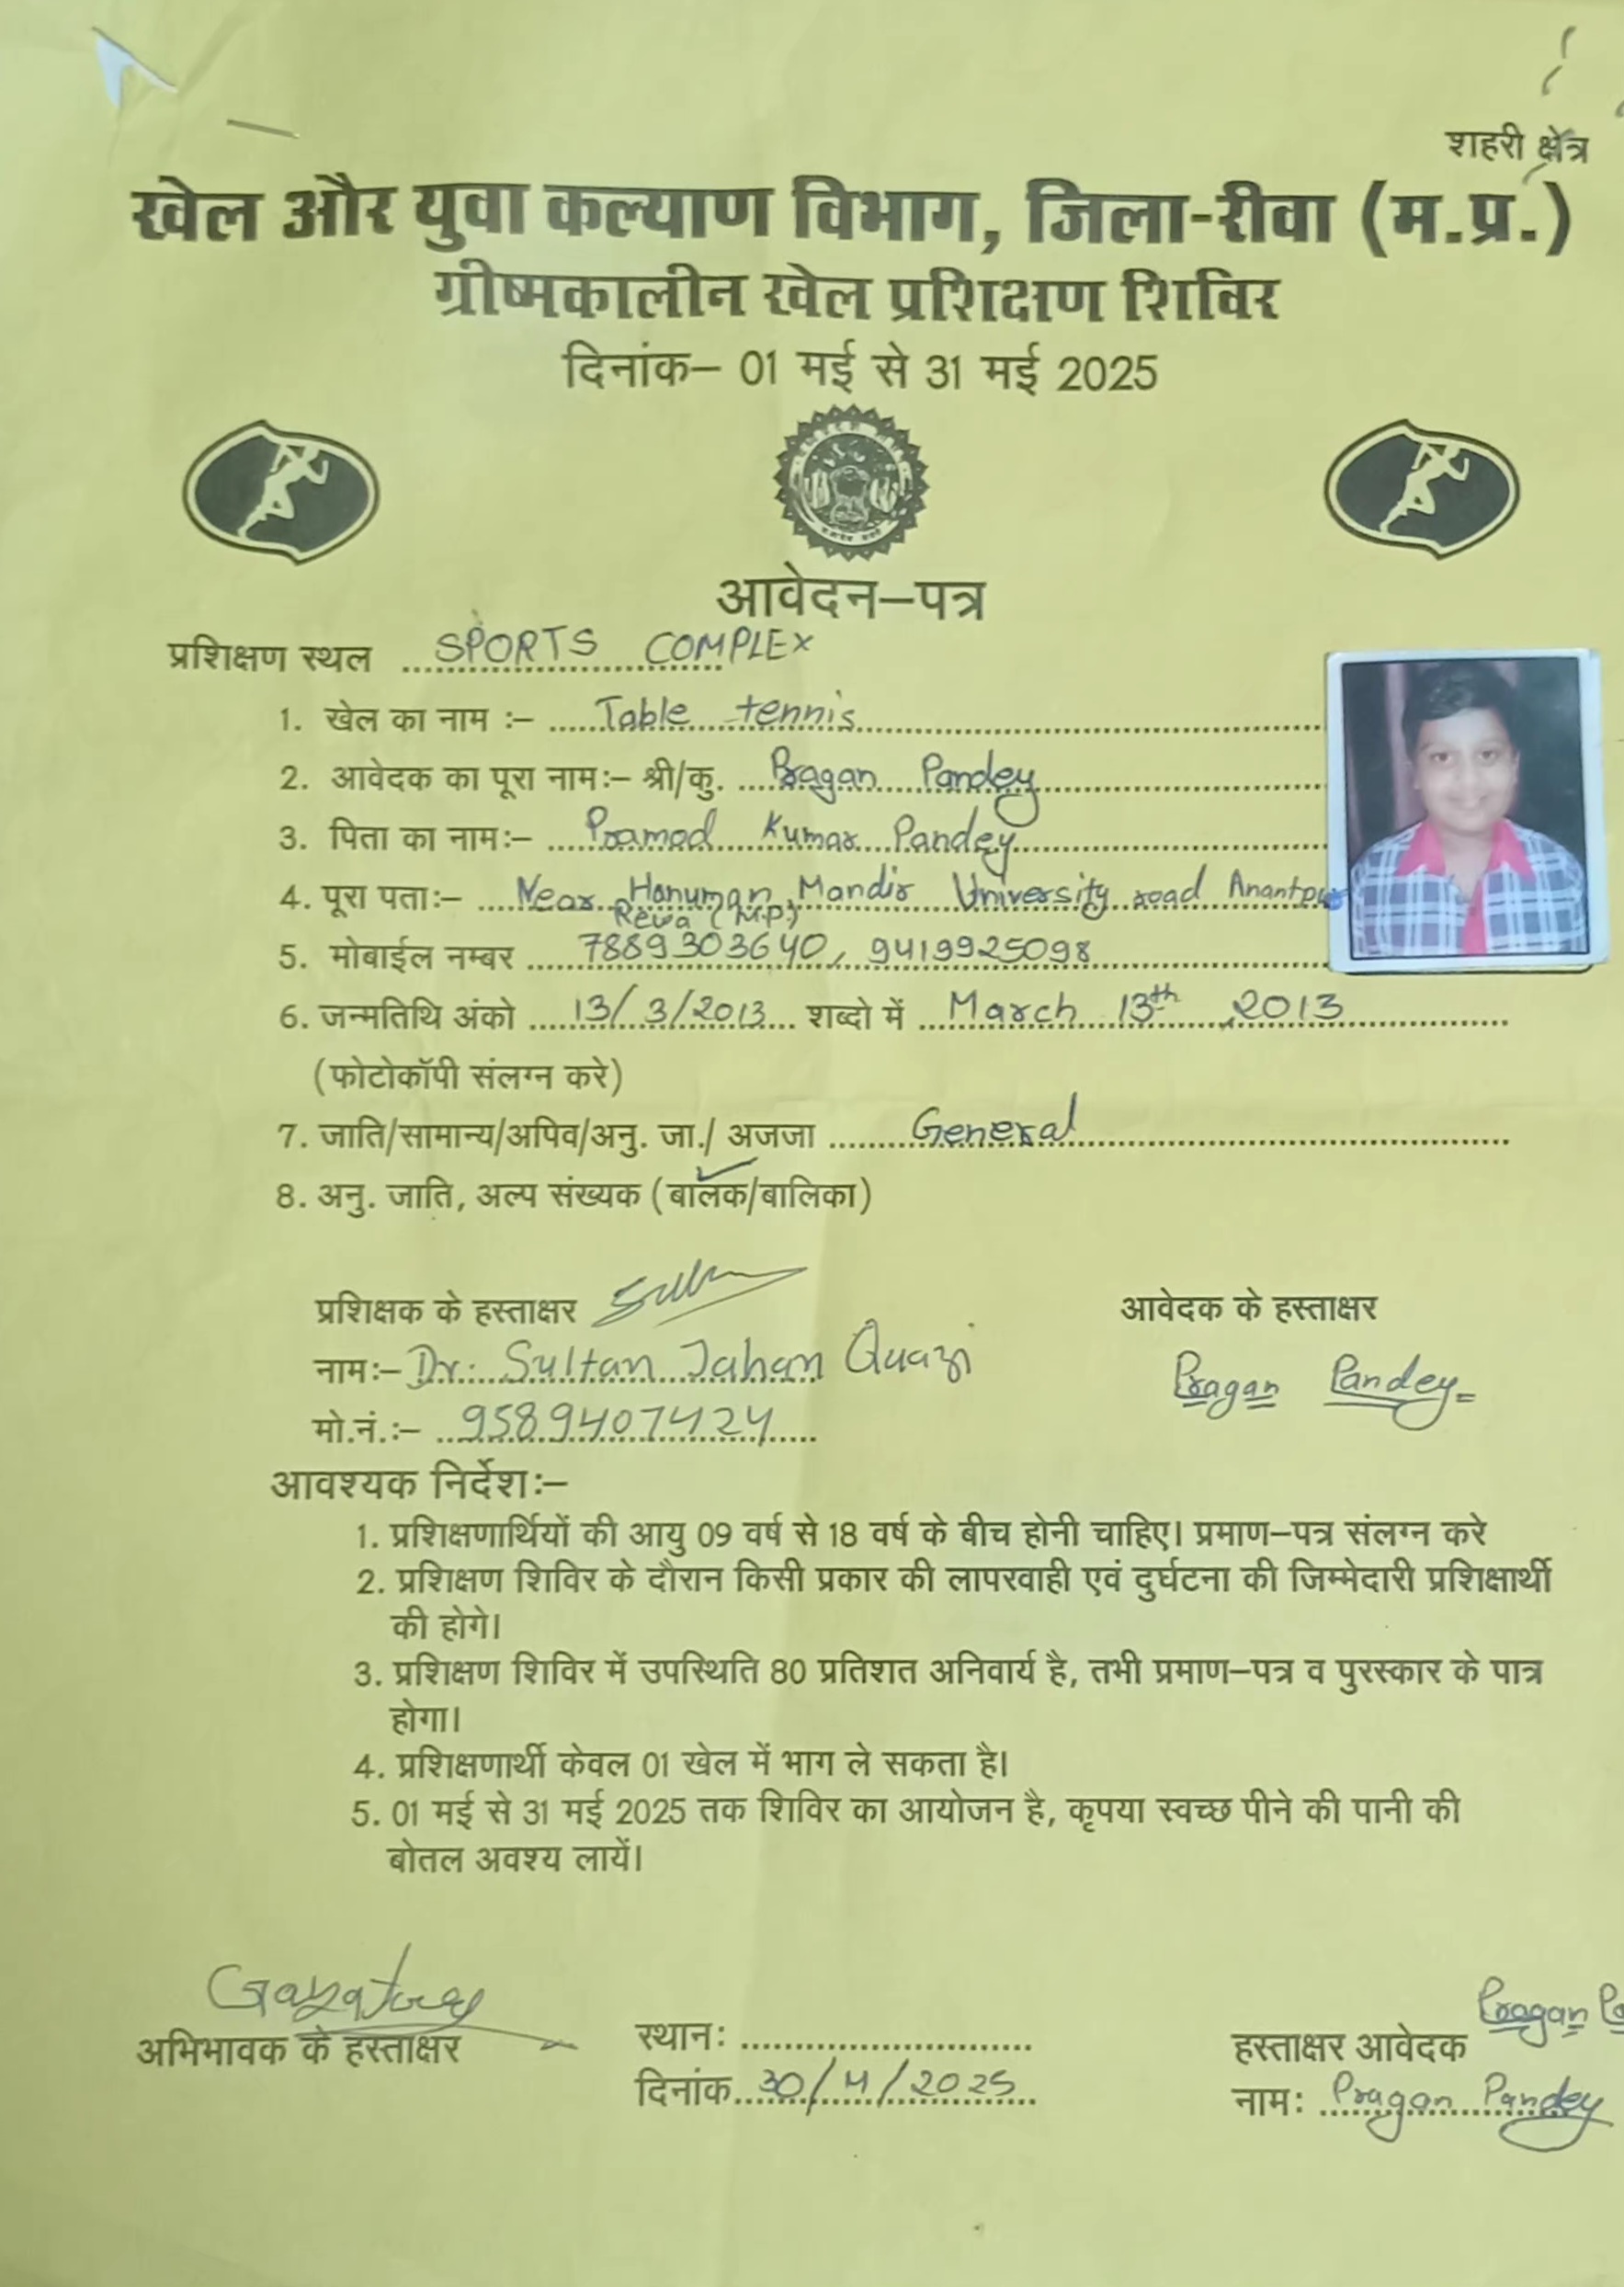 शहरी क्षेत्र
खेल और युवा कल्याण विभाग, जिला-रीवा (म.प्र.)
ग्रीष्मकालीन खेल प्रशिक्षण शिविर
दिनांक– 01 मई से 31 मई 2025
आवेदन–पत्र
प्रशिक्षण स्थल SPORTS COMPLEX
1. खेल का नाम :– Table tennis
2. आवेदक का पूरा नाम:– श्री/कु. Pragan Pandey
3. पिता का नाम:– Pramod Kumar Pandey
4. पूरा पता:– Near Hanuman Mandir University road Anantpur
Rewa (M.P)
5. मोबाईल नम्बर 7889303640, 9419925098
6. जन्मतिथि अंको 13/3/2013 शब्दो में March 13th, 2013
(फोटोकॉपी संलग्न करे)
7. जाति/सामान्य/अपिव/अनु. जा./ अजजा General
8. अनु. जाति, अल्प संख्यक (बालक/बालिका)
प्रशिक्षक के हस्ताक्षर आवेदक के हस्ताक्षर
नाम:– Dr. Sultan Jahan Quazi Pragan Pandey
मो.नं.:– 9589407424
आवश्यक निर्देश:–
1. प्रशिक्षणार्थियों की आयु 09 वर्ष से 18 वर्ष के बीच होनी चाहिए। प्रमाण–पत्र संलग्न करे
2. प्रशिक्षण शिविर के दौरान किसी प्रकार की लापरवाही एवं दुर्घटना की जिम्मेदारी प्रशिक्षार्थी
की होगे।
3. प्रशिक्षण शिविर में उपस्थिति 80 प्रतिशत अनिवार्य है, तभी प्रमाण–पत्र व पुरस्कार के पात्र
होगा।
4. प्रशिक्षणार्थी केवल 01 खेल में भाग ले सकता है।
5. 01 मई से 31 मई 2025 तक शिविर का आयोजन है, कृपया स्वच्छ पीने की पानी की
बोतल अवश्य लायें।
Pragan
अभिभावक के हस्ताक्षर स्थान: हस्ताक्षर आवेदक
दिनांक 30/4/2025 नाम: Pragan Pandey